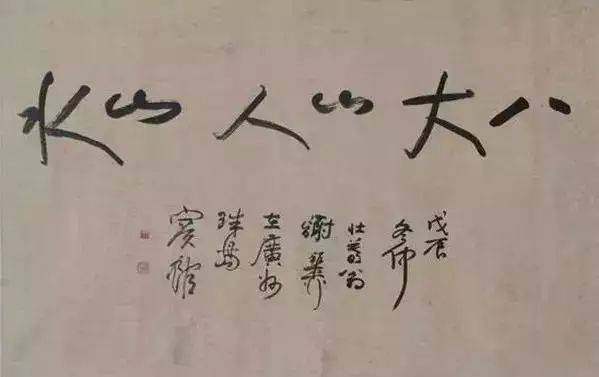 八大山人山水
戊辰
冬仲
壮暮翁
謝稚
在廣州
珠島
賓館